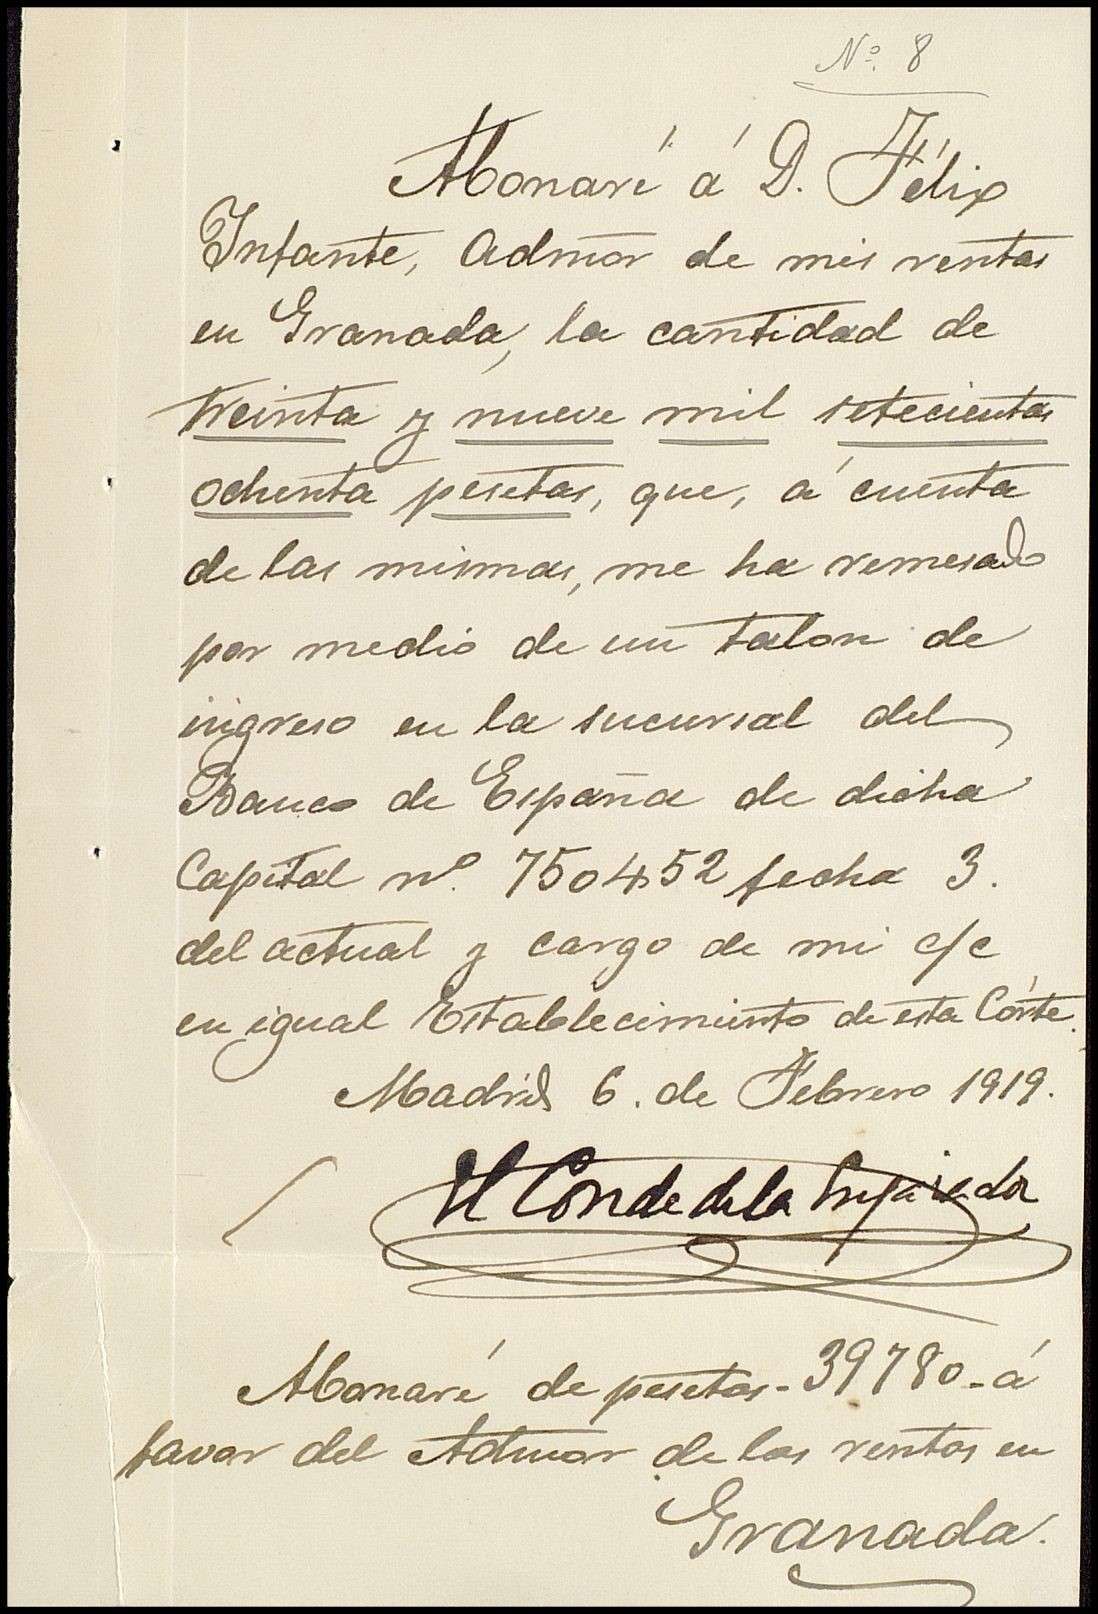 Nº. 8
Abonaré á D. Félix
Infante, Admor de mis rentas
en Granada, la cantidad de
treinta y nueve mil setecientas
ochenta pesetas, que, á cuenta
de las mismas, me ha remesado
por medio de un talon de
ingreso en la sucursal del
Banco de España de dicha
Capital nº. 750452 fecha 3.
del actual y cargo de mi c/c
en igual Establecimiento de esta Córte.
Madrid 6. de Febrero 1919.
El Conde de la
Abonaré de pesetas-39780-á
favor del Admor de las rentas en
Granada.